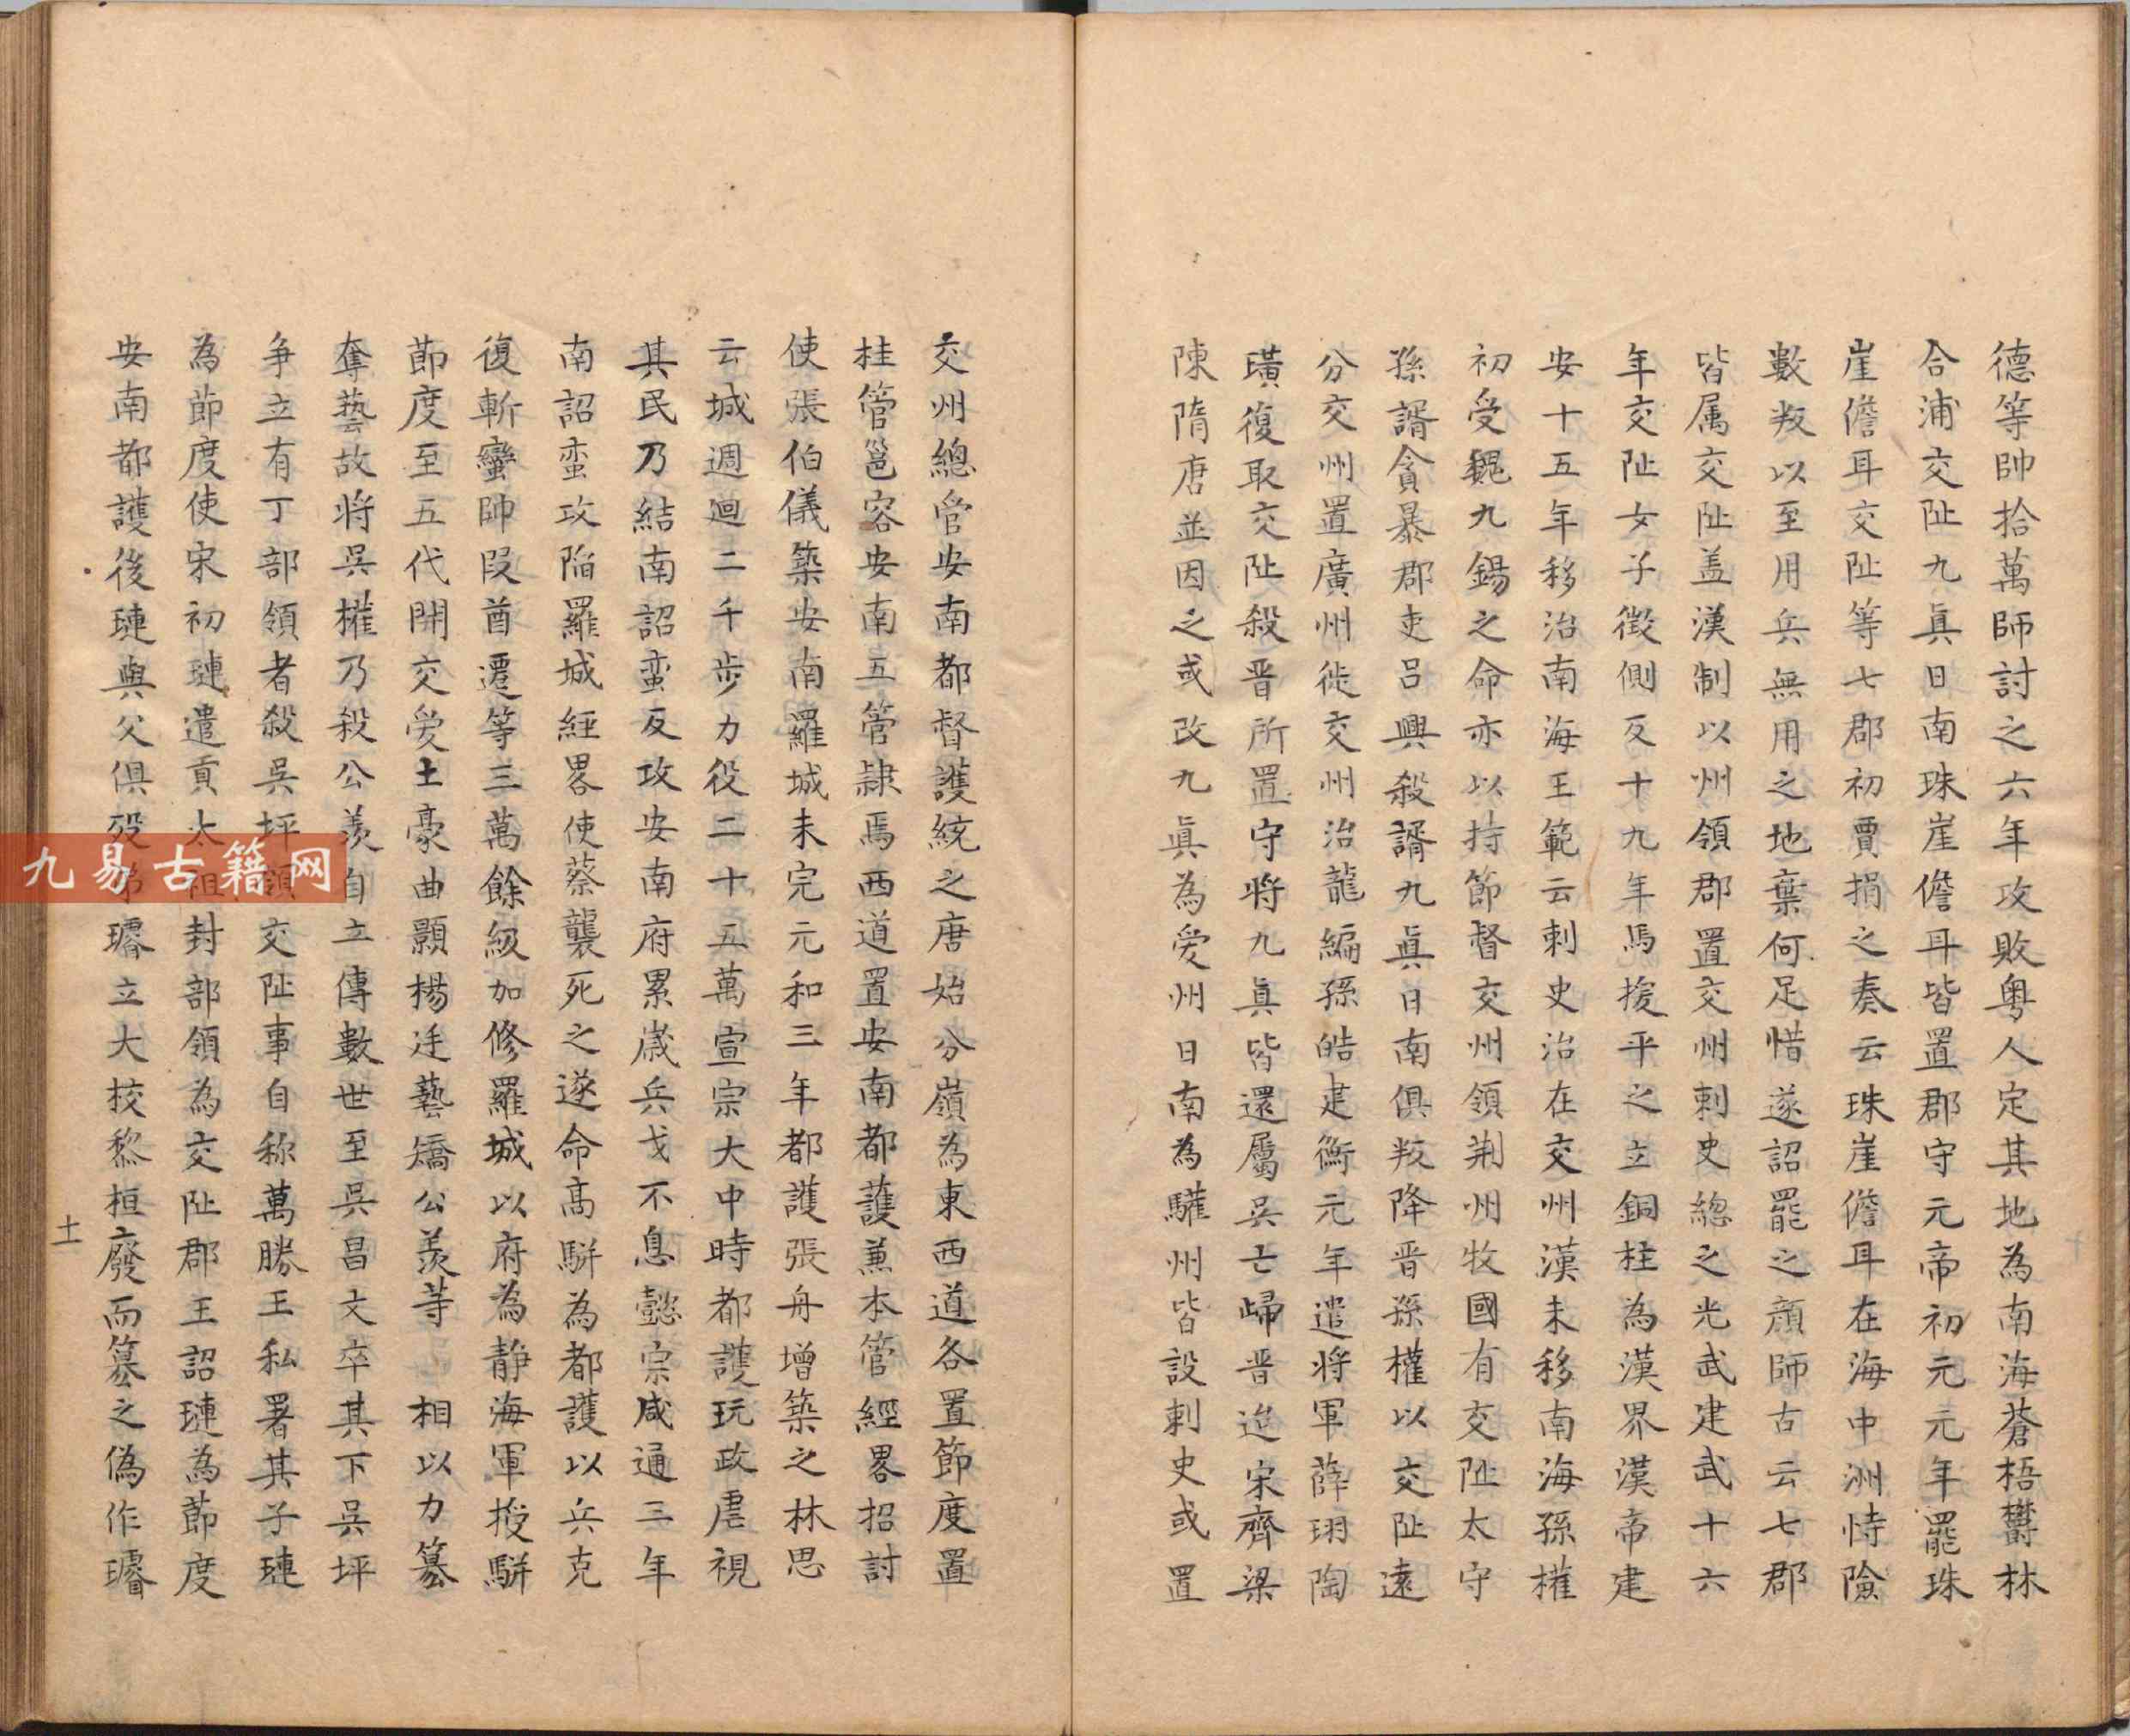 德等帥拾萬師討之六年攻敗粤人定其地為南海蒼梧欝林
合浦交阯九眞日南珠崖儋耳皆置郡守元帝初元元年罷珠
崖儋耳交阯等七郡初賈捐之奏云珠崖儋耳在海中洲恃險
數叛以至用兵無用之地棄何足惜遂詔罷之顔師古云七郡
皆属交阯盖漢制以州領郡置交州刺史總之光武建武十六
年交阯女子徴側反十九年馬援平之立銅柱為漢界漢帝建
安十五年移治南海王範云刺史治在交州漢未移南海孫權
初受魏九錫之命亦以持節督交州領荆州牧國有交阯太守
孫諝貪暴郡吏吕興殺諝九眞日南俱叛降晋孫權以交阯遠
分交州置廣州徙交州治龍編孫皓建衡元年遣将軍薛珝陶
璜復取交阯殺晋所置守将九眞皆還屬吳亡歸晋迨宋齊梁
陳隋唐並因之或改九眞為爱州日南為驩州皆設刺史或置
交州總管安南都督護統之唐始分嶺為東西道各置節度置
桂管邕容安南五管隷焉西道置安南都護兼本管經畧招討
使張伯儀築安南羅城未完元和三年都護張舟增築之林思
云城週廻二千步力役二十五萬宣宗大中時都護玩政虐視
其民乃結南詔蛮反攻安南府累歲兵戈不息懿宗咸通三年
南詔蛮攻陷羅城経畧使蔡襲死之遂命髙駢為都護以兵克
復斬蠻帥段酋遷等三萬餘級加修羅城以府為静海軍授駢
節度至五代開交爱土豪曲顥楊廷藝矯公羡等 相以力篡
奪藝故将吳權乃殺公羡自立傳數世至吳昌文卒其下吳坪
争立有丁部領者殺吳坪領交阯事自称萬勝王私署其子璉
為節度使宋初璉遣貢太祖封部領為交阯郡王詔璉為節度
安南都護後璉與父俱殁弟璿立大挍黎桓廢而篡之偽作璿
十一
九易古籍网